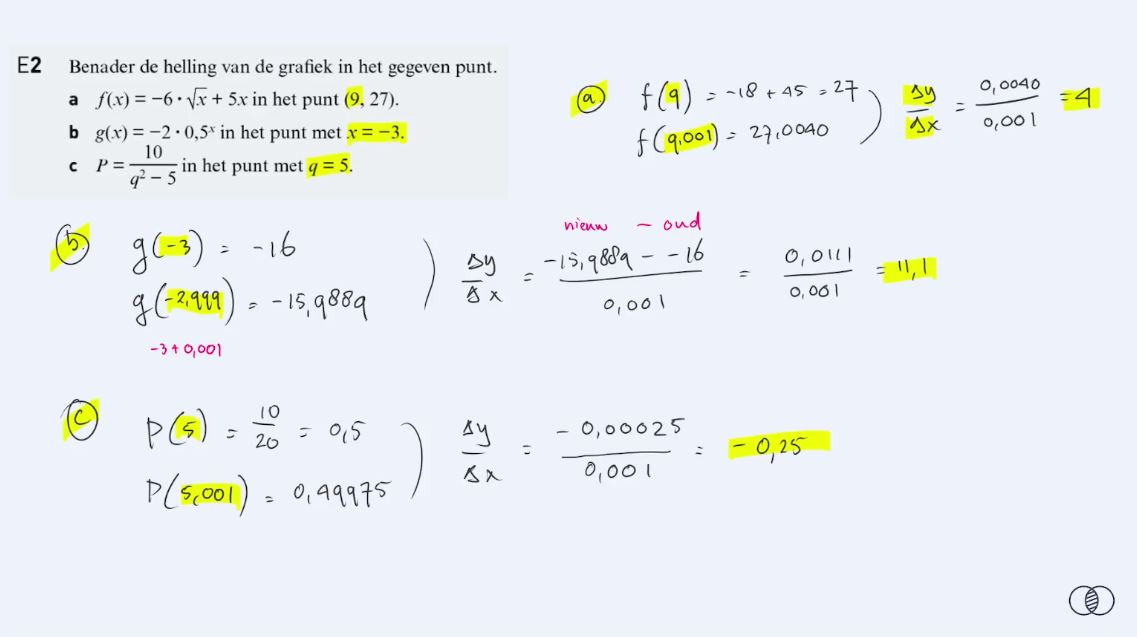 E2 Benader de helling van de grafiek in het gegeven punt.
a f(x) = −6 · √x + 5x in het punt (9, 27).
b g(x) = −2 · 0,5ˣ in het punt met x = −3.
c P = 10 / (q² − 5) in het punt met q = 5.
a. f(9) = -18 + 45 = 27
f(9,001) = 27,0040
Δy/Δx = 0,0040/0,001 = 4
b. g(-3) = -16
g(-2,999) = -15,9889
-3 + 0,001
nieuw - oud
Δy/Δx = -15,9889 - -16 / 0,001 = 0,0111/0,001 = 11,1
c P(5) = 10/20 = 0,5
P(5,001) = 0,49975
Δy/Δx = -0,00025/0,001 = -0,25